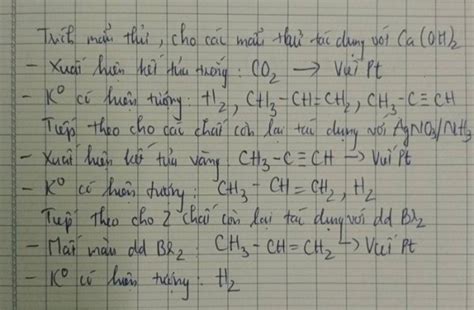 Trích mẫu thử, cho các mẫu thử tác dụng với Ca(OH)₂
- Xuất hiện kết tủa trắng : CO₂ → Viết Pt
- K⁰ có hiện tượng : H₂, CH₃-CH=CH₂, CH₃-C≡CH
Tiếp theo cho các chất còn lại tác dụng với AgNO₃/NH₃
- Xuất hiện kết tủa vàng : CH₃-C≡CH → Viết Pt
- K⁰ có hiện tượng : CH₃-CH=CH₂, H₂
Tiếp theo cho 2 chất còn lại tác dụng với dd Br₂
- Mất màu dd Br₂ : CH₃-CH=CH₂ → Viết Pt
- K⁰ có hiện tượng : H₂